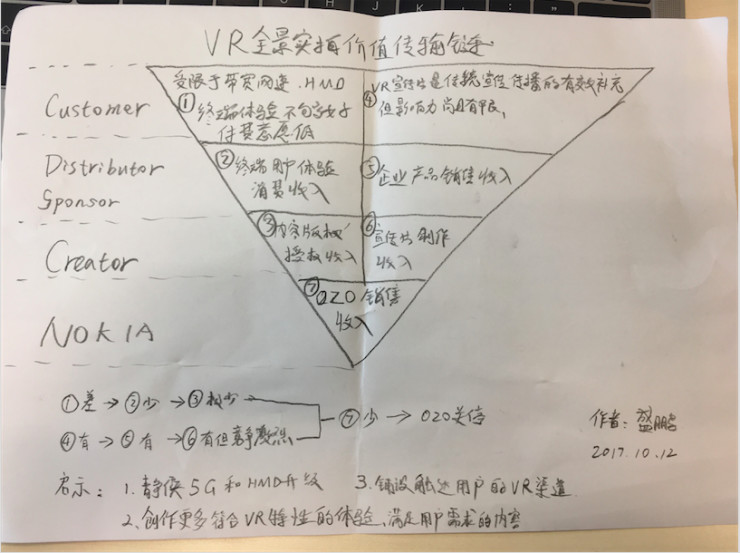 VR全景实拍价值传输链
Customer
受限于带宽网速、HMD
①终端体验不够友好
付费意愿低
④VR宣传片是传统宣传传播的有效补充
但影响力尚且有限。
Distributor
Sponsor
②终端用户体验
消费收入
⑤企业产品销售收入
Creator
③内容版权
授权收入
⑥宣传片制作
收入
NOKIA
⑦OZO销售
收入
①差→②少→③极少
④有→⑤有→⑥有但竞争激烈
⑦少→OZO关停
作者:盛鹏
2017.10.12
启示: 1.静候5G和HMD升级 3.铺设触达用户的VR渠道
2.创作更多符合VR特性的体验、满足用户需求的内容